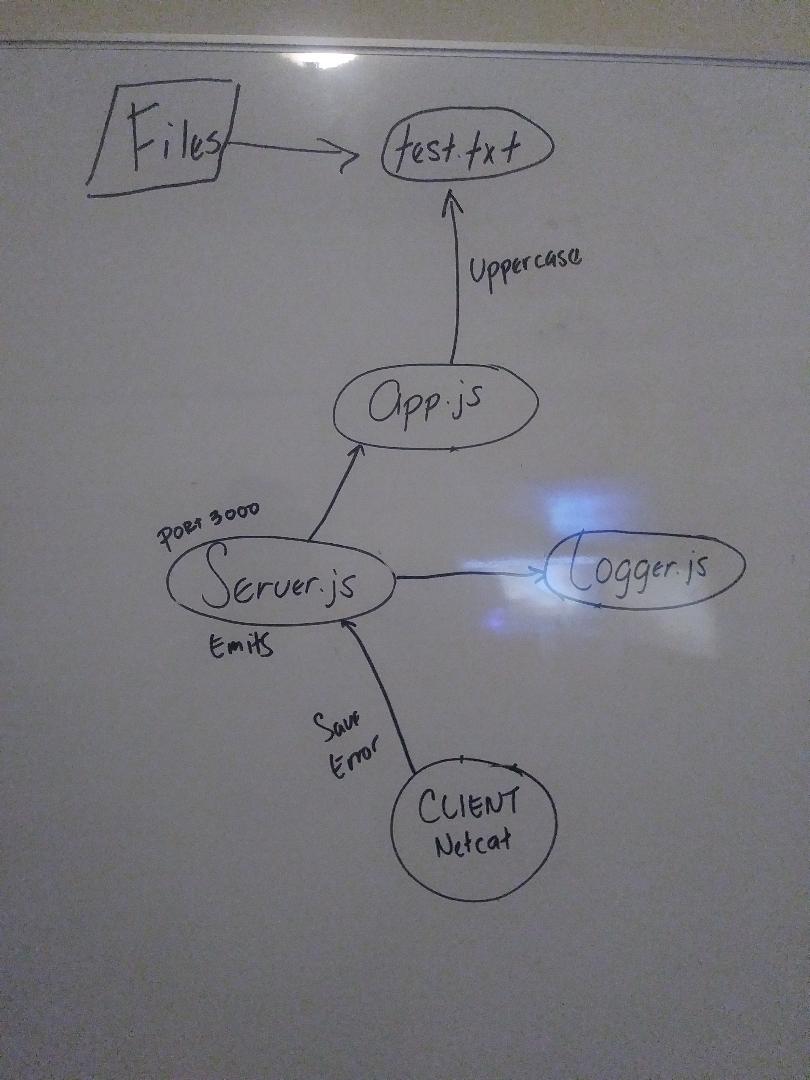 Files
test.txt
Uppercase
App.js
PORT 3000
Server.js
Logger.js
Emits
Save
Error
CLIENT
Netcat